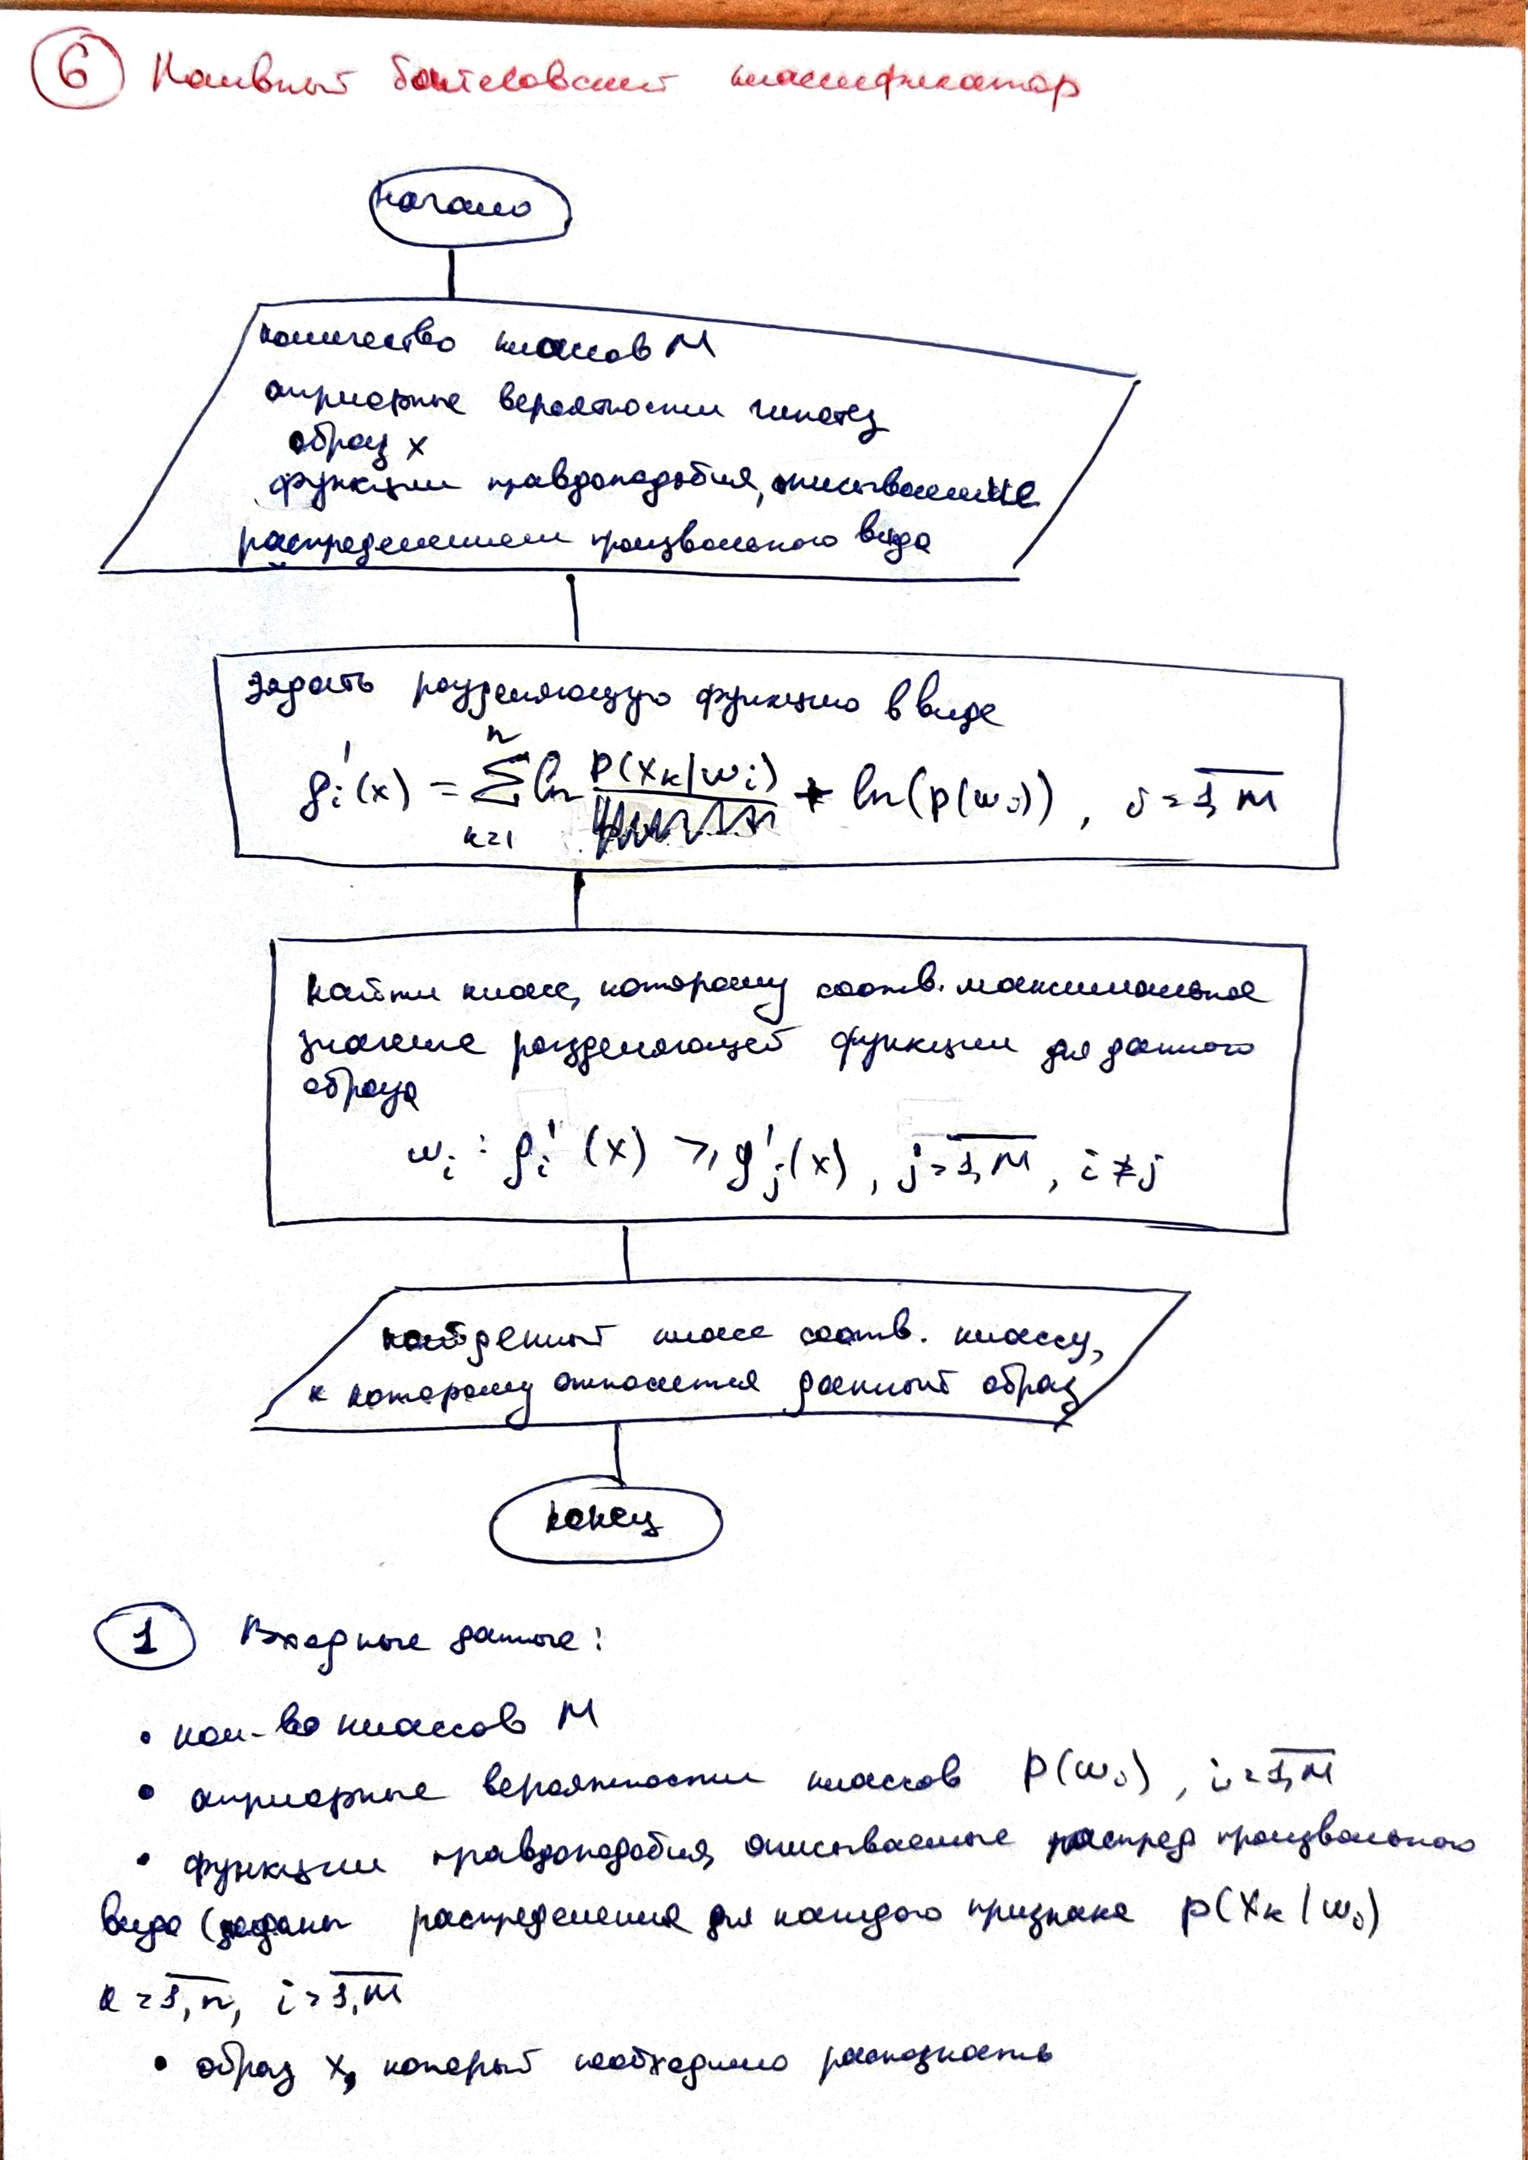 6 Наивный байесовский классификатор
начало
количество классов M
априорные вероятности гипотез
образ x
функции правдоподобия, описываемые
распределением произвольного вида
задать разделяющую функцию в виде
g'ᵢ(x) = ∑ₖ₌₁ⁿ ln p(xₖ|wᵢ) + ln(p(wᵢ)), i = 1,M
найти класс, которому соотв. максимальное
значение разделяющей функции для данного
образа
wᵢ : g'ᵢ(x) ⩾ g'ⱼ(x), j = 1,M, i ≠ j
найденный класс соотв. классу,
к которому относится данный образ
конец
1 Входные данные:
• кол-во классов M
• априорные вероятности классов p(wᵢ), i = 1,M
• функции правдоподобия, описываемые распред произвольного
вида (заданы распределения для каждого признака p(xₖ|wᵢ)
k = 1,n, i = 1,M
• образ x, который необходимо распознать